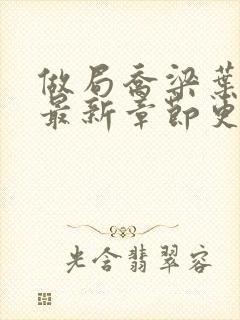 做局喬梁葉
最新章節更
光含翡翠容